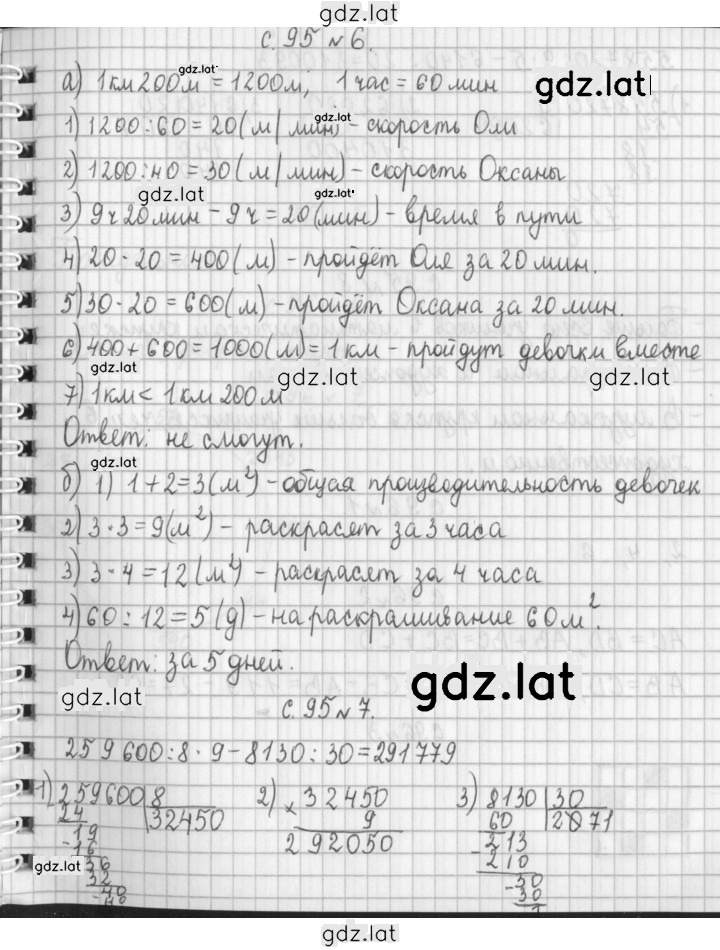 gdz.lat
с. 95 № 6.
gdz.lat
а) 1 км 200 м = 1200 м, 1 час = 60 мин
gdz.lat
1) 1200 : 60 = 20 (м/мин) - скорость Оли
2) 1200 : 40 = 30 (м/мин) - скорость Оксаны
gdz.lat gdz.lat
3) 9 ч 20 мин - 9 ч = 20 (мин) - время в пути
4) 20 · 20 = 400 (м) - пройдёт Оля за 20 мин.
5) 30 · 20 = 600 (м) - пройдёт Оксана за 20 мин.
6) 400 + 600 = 1000 (м) = 1 км - пройдут девочки вместе
gdz.lat gdz.lat gdz.lat
7) 1 км < 1 км 200 м
Ответ: не смогут.
gdz.lat
б) 1) 1 + 2 = 3 (м²) - общая производительность девочек
2) 3 · 3 = 9 (м²) - раскрасят за 3 часа
3) 3 · 4 = 12 (м²) - раскрасят за 4 часа
4) 60 : 12 = 5 (д) - на раскрашивание 60 м².
Ответ: за 5 дней.
gdz.lat gdz.lat
с. 95 № 7.
259 600 : 8 · 9 - 8130 : 30 = 291 779
1) 259600 8 2) × 32450 3) 8130 30
24 32450 9 60 2071
19 292050 213
- 16 - 210
36 30
gdz.lat 32 - 30
- 40
40
gdz.lat